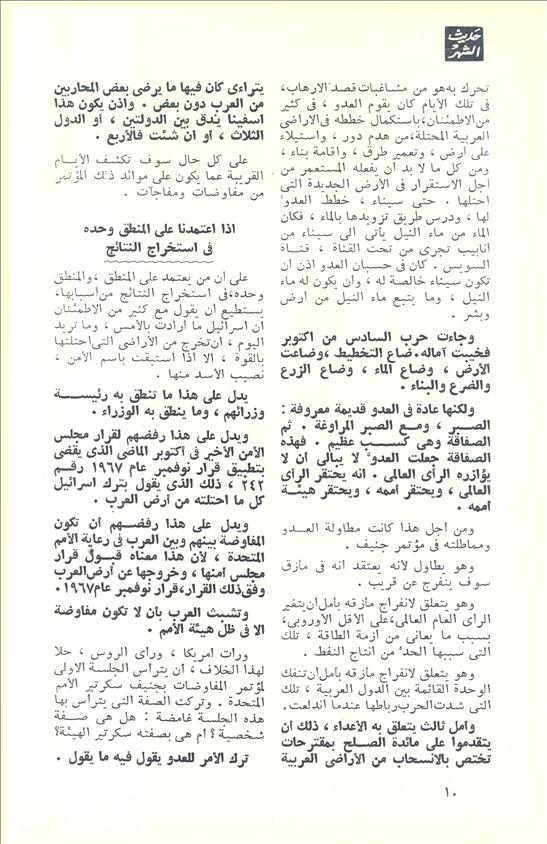 حديث
الشهر
تحرك به هو من مشاغبات قصد الارهاب،
فى تلك الأيام كان يقوم العدو ، فى كثير
من الاطمئنان، باستكمال خططه فى الأراضى
العربية المحتلة، من هدم دور ، واستيلاء
على أرض ، وتعمير طرق ، واقامة بناء ،
ومن كل ما لا بد أن يفعله المستعمر من
أجل الاستقرار فى الأرض الجديدة التى
احتلها . حتى سيناء ، خطط العدو
لها ، ودرس طريق تزويدها بالماء ، فكان
الماء من ماء النيل يأتى الى سيناء من
أنابيب تجرى من تحت القناة ، قناة
السويس . كان فى حسبان العدو اذن أن
تكون سيناء خالصة له ، وأن يكون له ماء
النيل ، وما يتبع ماء النيل من أرض
وبشر .
وجاءت حرب السادس من أكتوبر
فخيبت آماله . ضاع التخطيط ، وضاعت
الأرض ، وضاع الماء ، وضاع الزرع
والضرع والبناء .
ولكنها عادة فى العدو قديمة معروفة :
الصبر ، ومع الصبر المراوغة . ثم
الصفاقة وهى كسب عظيم . فهذه
الصفاقة جعلت العدو لا يبالى أن لا
يؤازره الرأى العالمى . انه يحتقر الرأى
العالمى ، ويحتقر أممه ، ويحتقر هيئة
أممه .
ومن أجل هذا كانت مطاولة العدو
ومماطلته فى مؤتمر جنيف .
وهو يطاول لأنه يعتقد أنه فى مأزق
سوف ينفرج عن قريب .
وهو يتعلق لانفراج مأزقه بأمل أن يتغير
الرأى العام العالمى، على الأقل الأوروبى،
بسبب ما يعانى من أزمة الطاقة ، تلك
التى سببها الحد من انتاج النفط .
وهو يتعلق لانفراج مأزقه بأمل أن تنفك
الوحدة القائمة بين الدول العربية ، تلك
التى شدت الحرب رباطها عندما اندلعت .
وأمل ثالث يتعلق به الأعداء ، ذلك أن
يتقدموا على مائدة الصلح بمقترحات
تختص بالانسحاب من الأراضى العربية
يتراءى كان فيها ما يرضى بعض المحاربين
من العرب دون بعض . واذن يكون هذا
اسفينا يدق بين الدولتين ، أو الدول
الثلاث ، أو ان شئت فالأربع .
على كل حال سوف تكشف الأيام
القريبة عما يكون على موائد ذلك المؤتمر
من مفاوضات ومفاجآت .
اذا اعتمدنا على المنطق وحده
فى استخراج النتائج
على أن من يعتمد على المنطق ، والمنطق
وحده، فى استخراج النتائج من أسبابها،
يستطيع أن يقول مع كثير من الاطمئنان
ان اسرائيل ما أرادت بالأمس ، وما تريد
اليوم ، أن تخرج من الأراضى التى احتلتها
بالقوة ، الا اذا استبقت باسم الأمن ،
نصيب الأسد منها .
يدل على هذا ما تنطق به رئيسة
وزرائهم ، وما ينطق به الوزراء .
ويدل على هذا رفضهم لقرار مجلس
الأمن الأخير فى أكتوبر الماضى الذى يقضى
بتطبيق قرار نوفمبر عام ١٩٦٧ رقم
٢٤٢ ، ذلك الذى يقول بترك اسرائيل
كل ما احتلته من أرض العرب .
ويدل على هذا رفضهم أن تكون
المفاوضة بينهم وبين العرب فى رعاية الأمم
المتحدة ، لأن هذا معناه قبول قرار
مجلس أمنها ، وخروجها عن أرض العرب
وفق ذلك القرار، قرار نوفمبر عام ١٩٦٧.
وتشبث العرب بأن لا تكون مفاوضة
الا فى ظل هيئة الأمم .
ورأت أمريكا ، ورأى الروس ، حلا
لهذا الخلاف ، أن يترأس الجلسة الأولى
لمؤتمر المفاوضات بجنيف سكرتير الأمم
المتحدة . وتركت الصفة التى يترأس بها
هذه الجلسة غامضة : هل هى صفة
شخصية ؟ أم هى بصفته سكرتير الهيئة؟
ترك الأمر للعدو يقول فيه ما يقول .
١٠